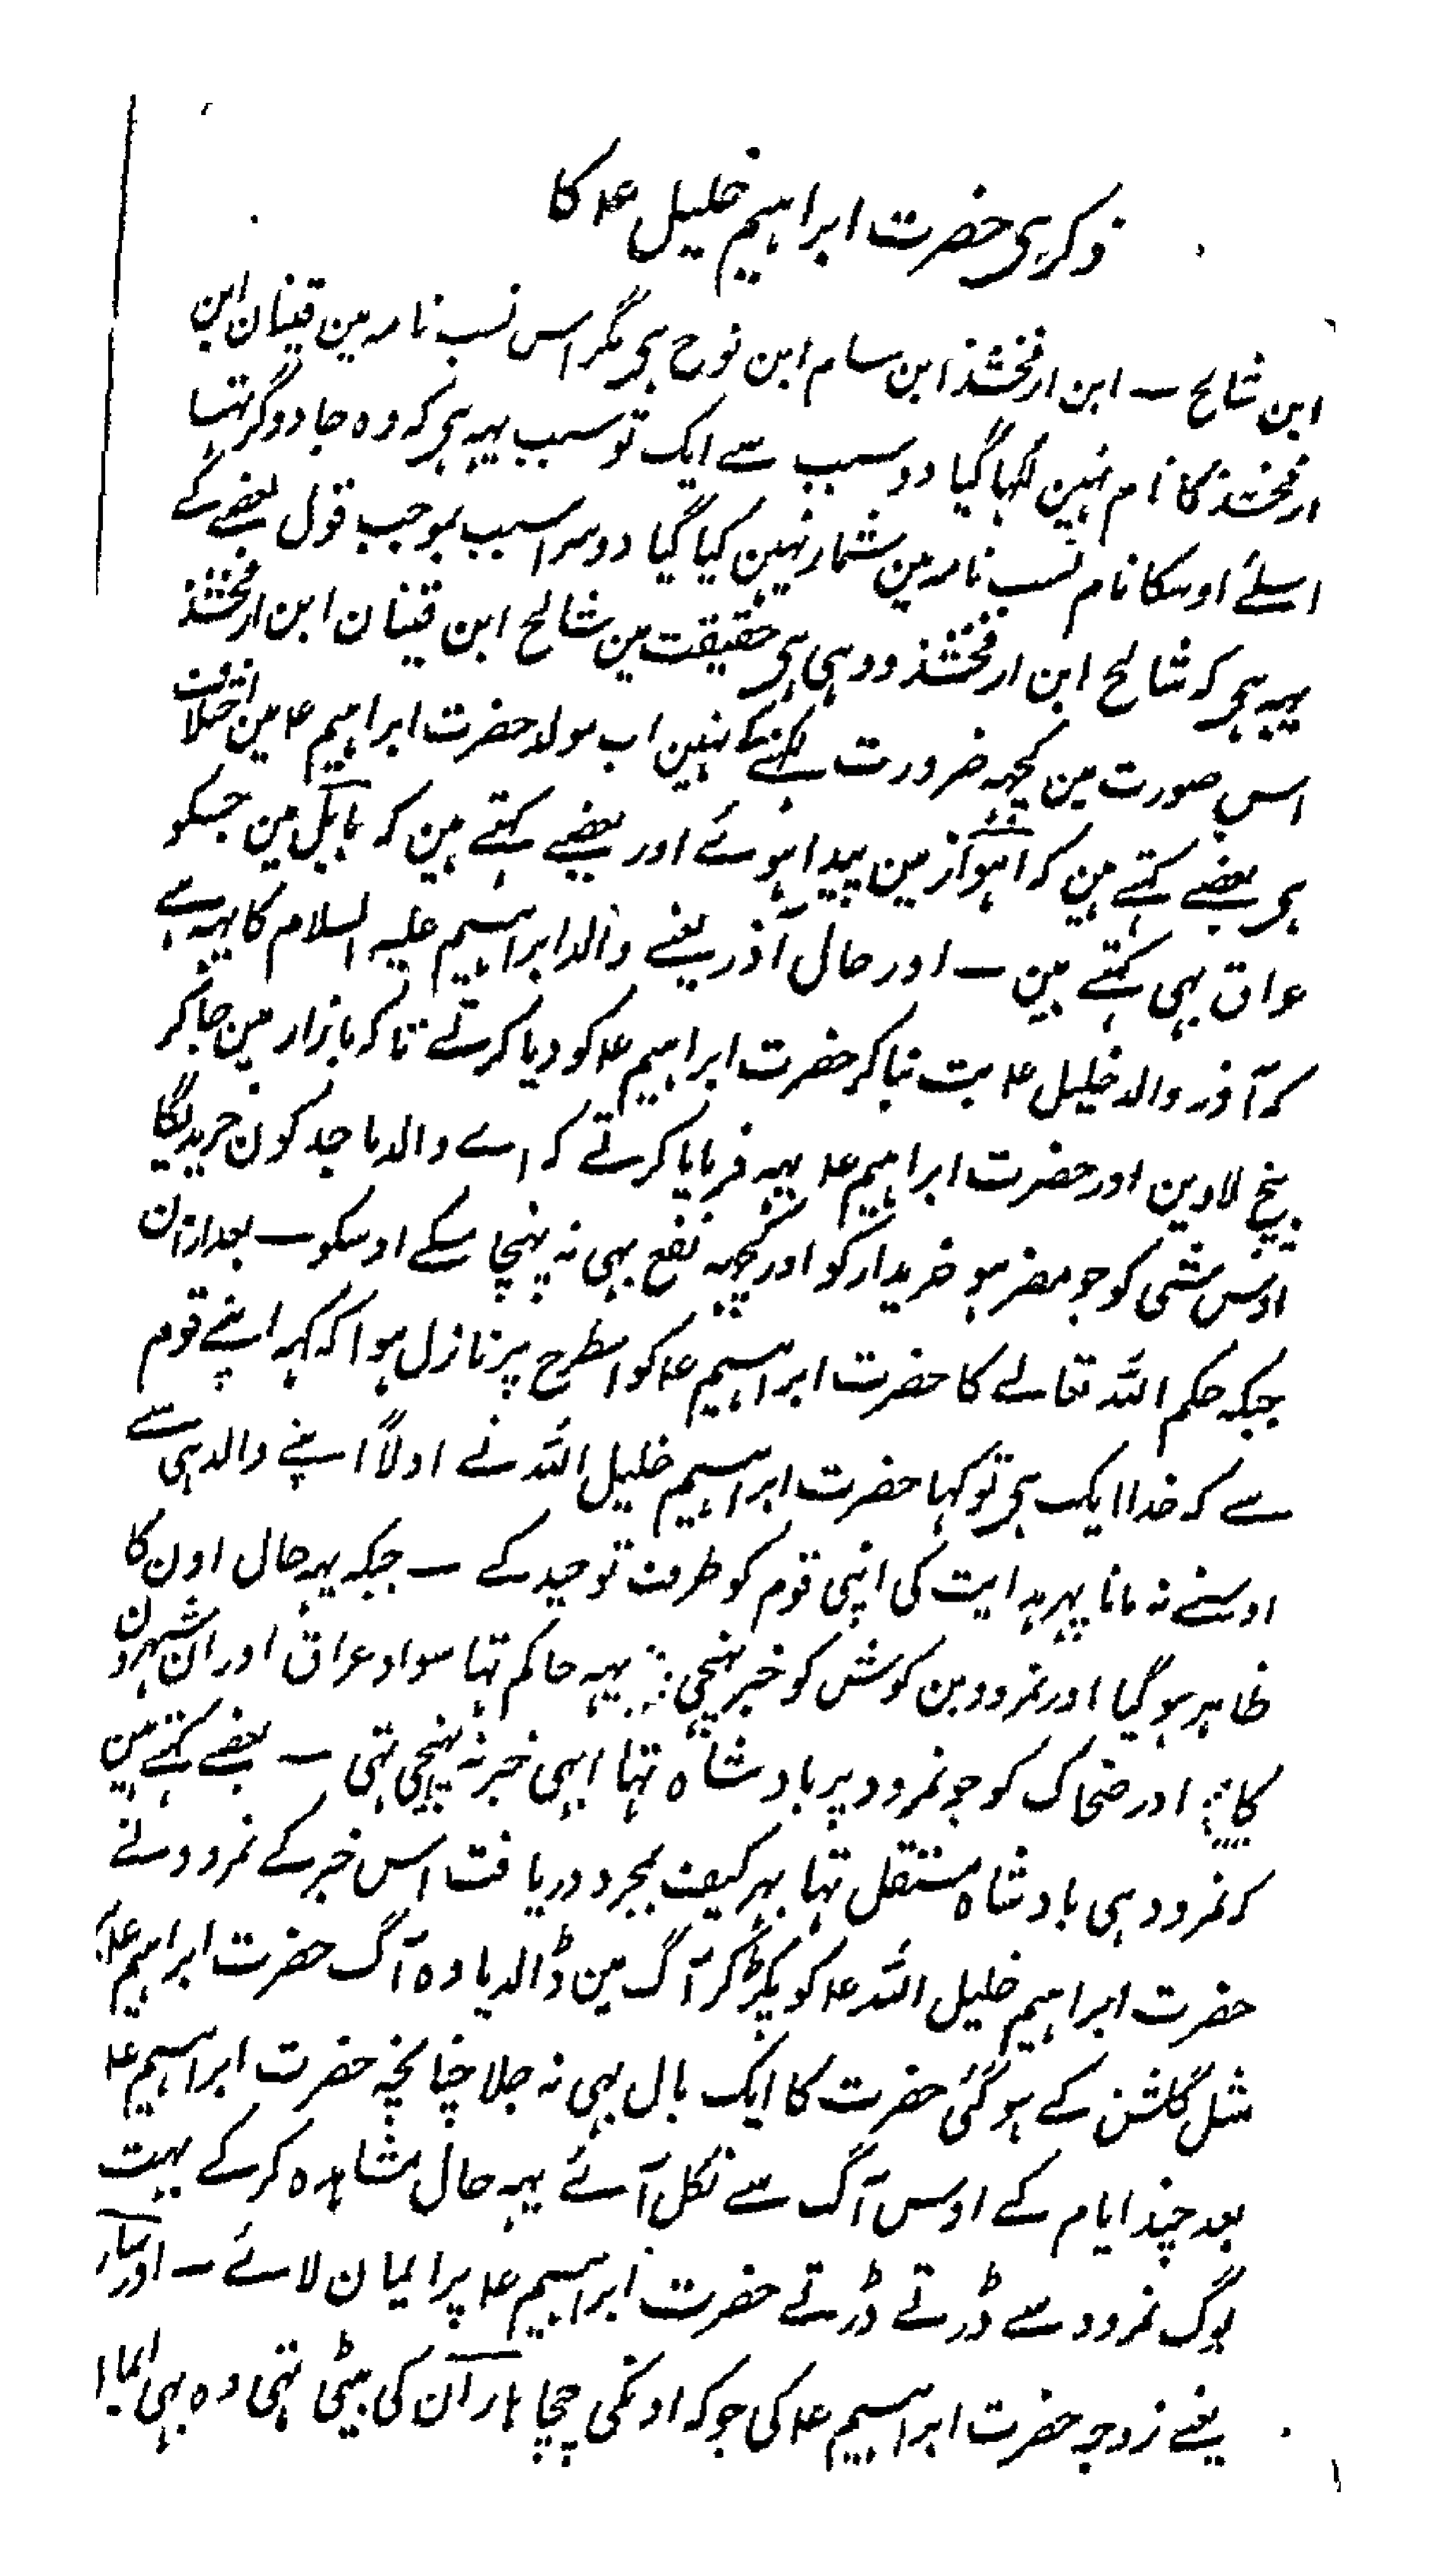 ذکر ہی حضرت ابراہیم خلیل ع کا
ابن شالح ـ ابن ارفخشذ ابن سام ابن نوح ہی مگر اس نسب نامہ مین قینان ابن
ارفخشذ کا نام نہین لکہا گیا دو سبب سے ایک تو سبب یہہ ہی کہ وہ جادوگر تہا
اسلئے اوسکا نام نسب نامہ مین شمار نہین کیا گیا دوسرا سبب بموجب قول بعضے کے
یہہ ہی کہ شالح ابن ارفخشذ وہی ہی حقیقت مین شالح ابن قینان ابن ارفخشذ
اس صورت مین کچہہ ضرورت لکہنے کے نہین اب مولد حضرت ابراہیم ع مین اختلاف
ہی بعضے کہتے ہین کہ اہواز مین پیدا ہوئے اور بعضے کہتے ہین کہ بابل مین جسکو
عراق بہی کہتے ہین ـ اور حال آذر یعنے والد ابراہیم علیہ السلام کا یہہ ہے
کہ آذر والد خلیل ع بت بنا کر حضرت ابراہیم ع کو دیا کرتے تاکہ بازار مین جاکر
بیچ لاوین اور حضرت ابراہیم ع یہہ فرمایا کرتے کہ اے والد ماجد کون خریدیگا
اوس شی کو جو مضر ہو خریدار کو اور کچہہ نفع بہی نہ پہنچا سکے اوسکو ـ بعد ازان
جبکہ حکم اللہ تعالے کا حضرت ابراہیم ع کو اسطرح پر نازل ہوا کہ کہہ اپنے قوم
سے کہ خدا ایک ہی تو کہا حضرت ابراہیم خلیل اللہ نے اولاً اپنے والد ہی سے
اوسنے نہ مانا پہر ہدایت کی اپنی قوم کو طرف توحید کے ـ جبکہ یہہ حال اون کا
ظاہر ہو گیا اور نمرود بن کوش کو خبر پہنچی یہہ حاکم تہا سواد عراق اور ان شہرون
کا اور ضحاک کو جو نمرود پر بادشاہ تہا ابہی خبر نہ پہنچی تہی ـ بعضے کہتے ہین
کہ نمرود ہی بادشاہ مستقل تہا بہر کیف بمجرد دریافت اس خبر کے نمرود نے
حضرت ابراہیم خلیل اللہ ع کو پکڑ کر آگ مین ڈالدیا وہ آگ حضرت ابراہیم ع
مثل گلشن کے ہو گئی حضرت کا ایک بال بہی نہ جلا چنانچہ حضرت ابراہیم ع
بعد چند ایام کے اوس آگ سے نکل آئے یہہ حال مشاہدہ کر کے بہت
لوگ نمرود سے ڈرتے ڈرتے حضرت ابراہیم ع پر ایمان لائے ـ اور سارہ
یعنے زوجہ حضرت ابراہیم ع کی جو کہ اونکی چچا ہاران کی بیٹی تہی وہ بہی